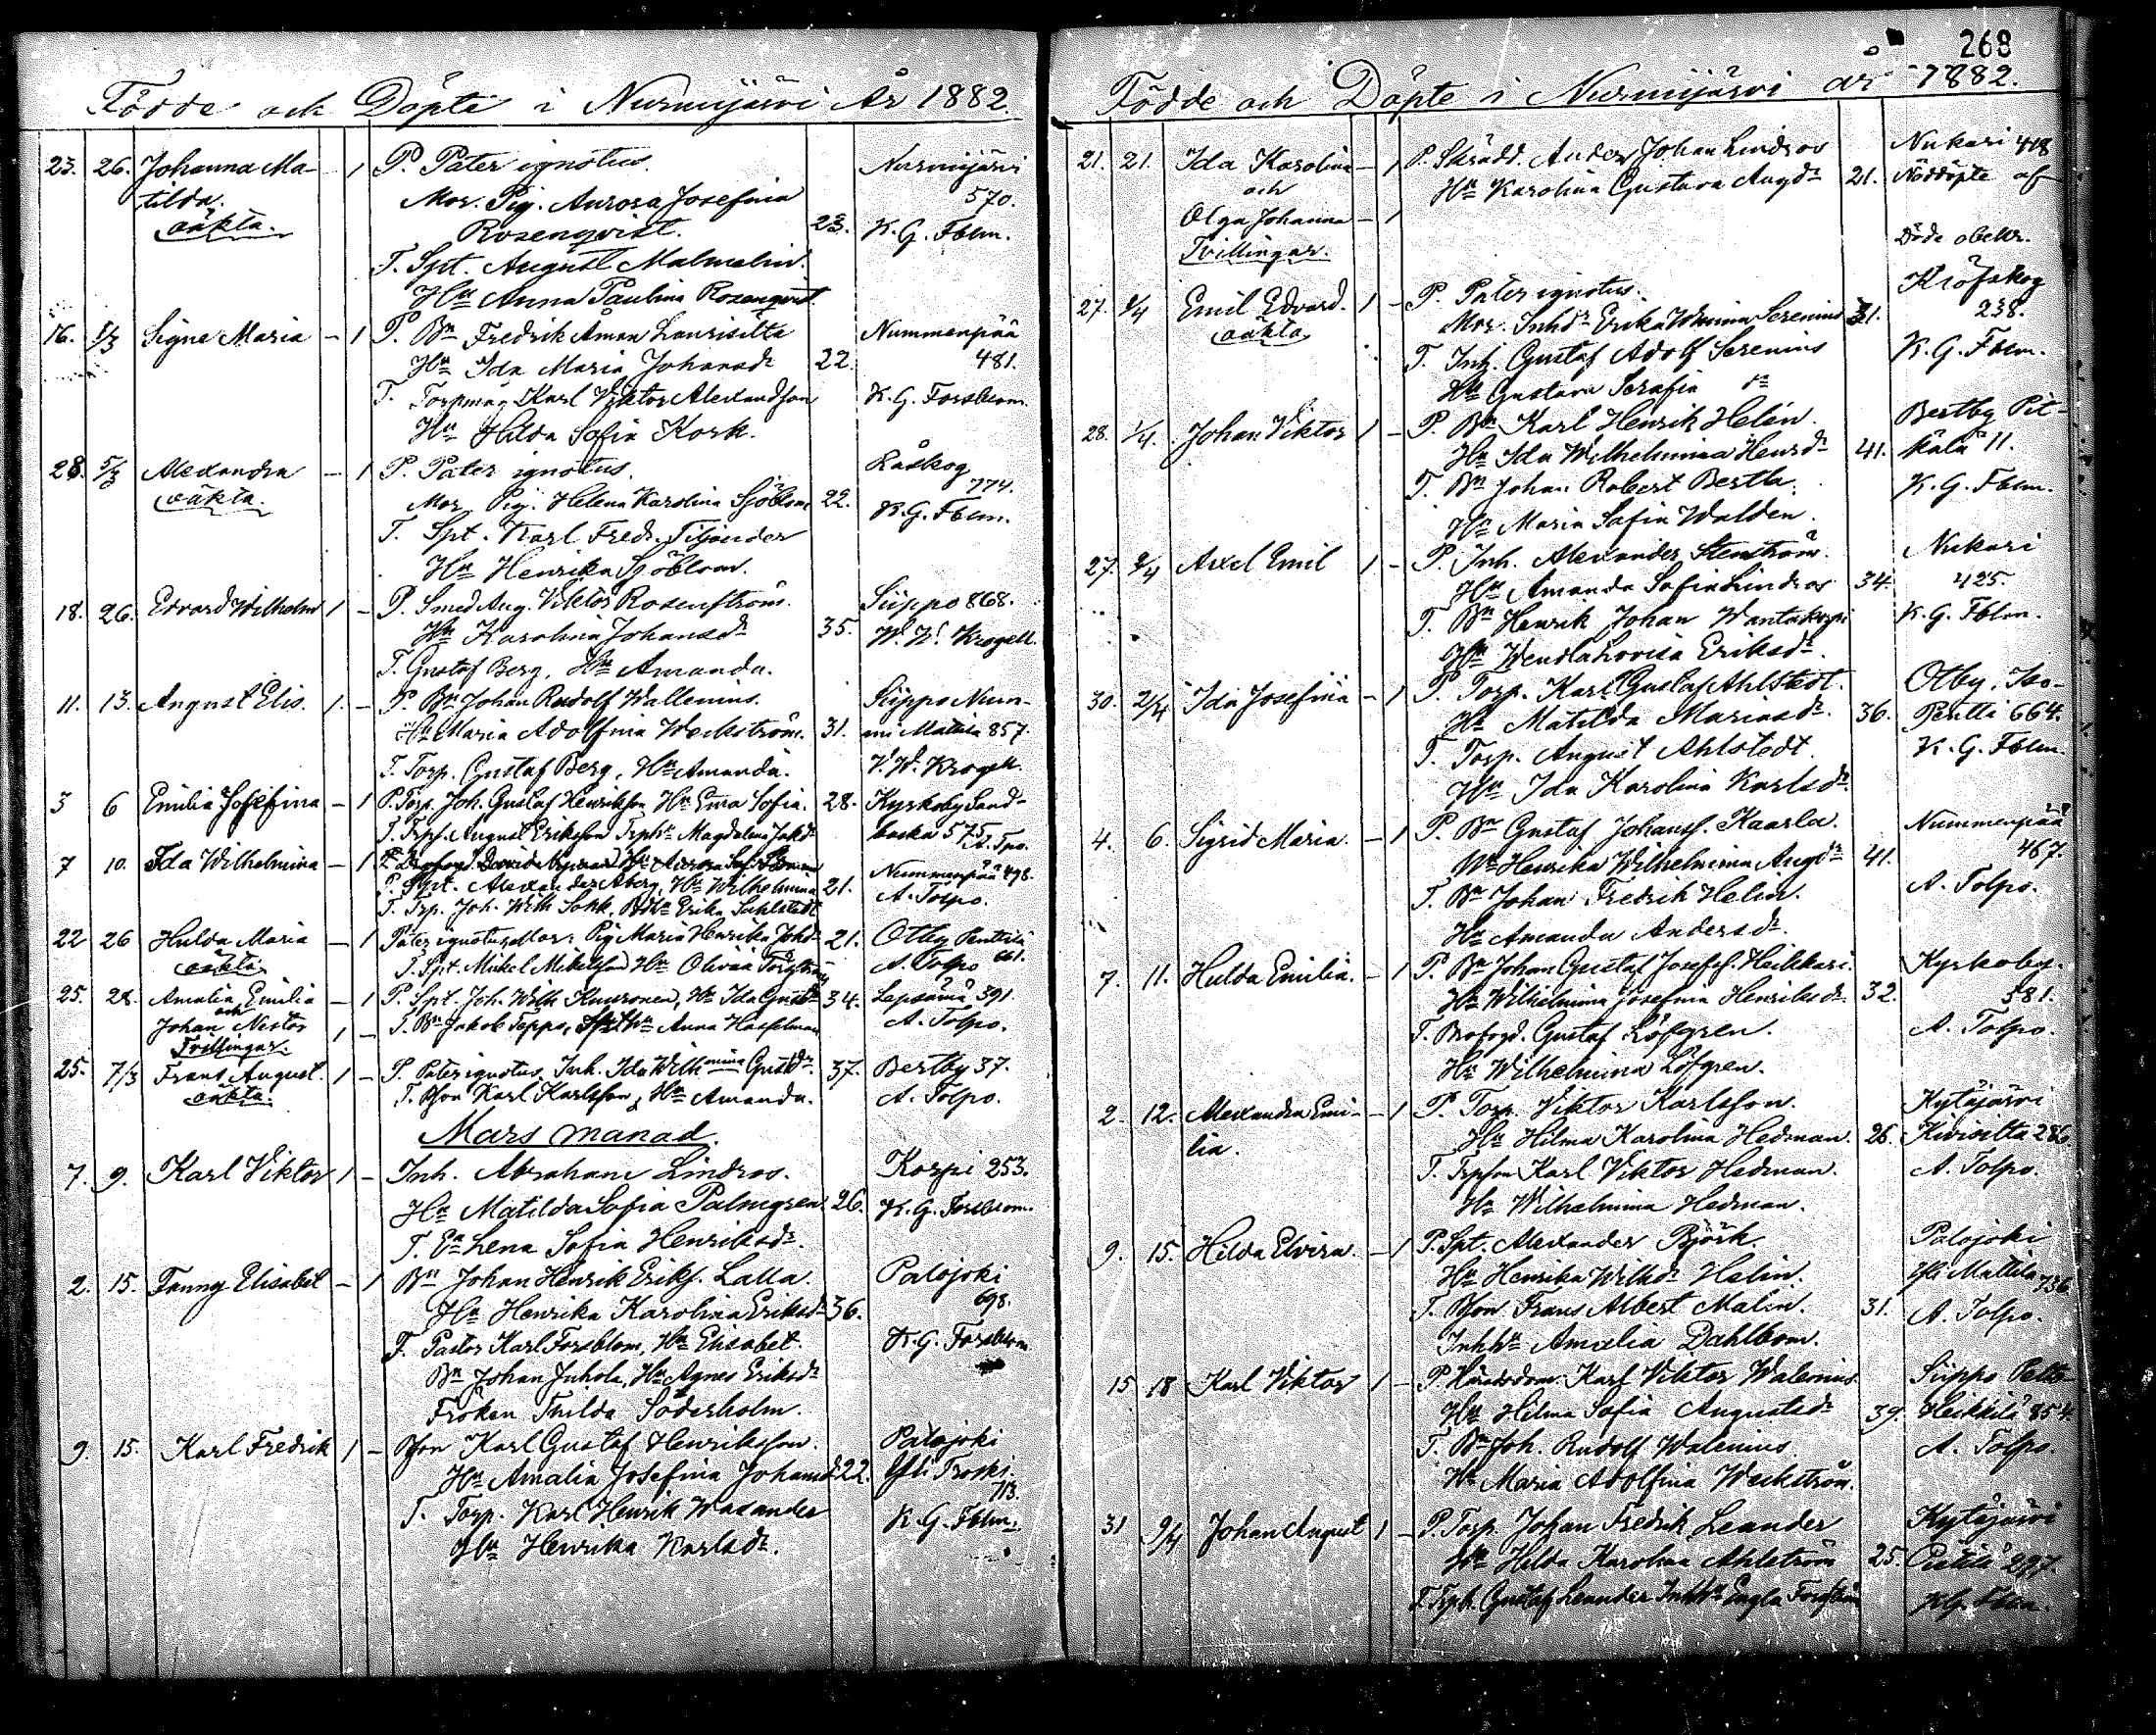 268
Födde och Döpte i Nurmijärvi År 1882.
23. 26. Johanna Ma- - 1 P. Pater ignotus. Nurmijärvi
tilda. Mor. Pig. Aurora Josefina 570.
oäkta. Rosenqvist. 23. K. G. Fblm.
T. Spt. August Malmelin.
Hu Anna Paulina Rosenqvist.
16. 1/3 Signe Maria - 1 P. Bn Fredrik Åman Laurisilta Nummenpää
Hu Ida Maria Johansdr 22. 481.
T. Torpmåg Karl Viktor Alexandsson K. G. Forsblom.
Hu Hilda Sofia Kork.
28. 5/3 Alexandra - 1 P. Pater ignotus. Råskog
oäkta. Mor Pig. Helena Karolina Sjöblom 22. 774.
T. Spt. Karl Fredr. Tiljander K. G. Fblm.
Hu Henrika Sjöblom.
18. 26. Edvard Wilhelm 1 - P. Smed Aug. Viktor Rosenström. Siippo 868.
Hu Karolina Johansdr 35. W. W. Krogell.
T. Gustaf Berg, Hu Amanda.
11. 13. August Elis. 1. - P. Bn Johan Rudolf Wallenius. Siippo Num-
Hu Maria Adolfina Weckström. 31. mi Mattila 857.
T. Torp. Gustaf Berg, Hu Amanda. V. W. Krogell.
3 6 Emilia Josefina - 1 P. Torp. Joh. Gustaf Henriksson Hu Eva Sofia. 28. Kyrkoby Sand-
T. Trpf. August Eriksson Trphu Magdalena Jakdr backa 575. A. Tpo.
7 10. Ida Wilhelmina - 1
P. Spt. Alexander Åberg, Hu Wilhelmina 21. Nummenpää 498.
T. Trp. Joh. Wilh Sokk, Hu Erika Sahlstedt A. Tolpo.
22 26 Hulda Maria - 1 Pater ignotus Mor: Pig Maria Henrika Johdr 21. Otby Penttilä
oäkta. T. Spt. Mikel Mikelsson Hu Olivia Forsström A. Tolpo 661.
25. 28. Amalia Emilia - 1 P. Spt. Joh. Wilh Kuuronen, Hu Ida Gustdr 34. Lepsämä 391.
och
Johan Nestor 1 - T. Bn Jakob Teppo, Hu Anna Hasselman A. Tolpo.
Tvillingar.
25. 7/3 Frans August. 1 - P. Pater ignotus, Inh. Ida Wilhmina Gustdr 37. Bertby 37.
oäkta. T. Bson Karl Karlsson, Hu Amanda. A. Tolpo.
Mars månad.
7. 9. Karl Viktor 1 - Inh. Abraham Lindros. Korpi 253.
Hu Matilda Sofia Palmgren 26. K. G. Forsblom.
T. En Lena Sofia Henriksdr.
2. 15. Fanny Elisabet - 1 Bn Johan Henrik Eriks. Lalla. Palojoki
Hu Henrika Karolina Eriksdr 36. 698.
T. Pastor Karl Forsblom, Hu Elisabet. K. G. Forsblom
Bn Johan Juhola, Hu Agnes Eriksdr
Fröken Thilda Söderholm.
9. 15. Karl Fredrik 1 - Bson Karl Gustaf Henriksson. Palojoki
Hu Amalia Josefina Johansdr 22. Yli Troski.
T. Torp. Karl Henrik Wasander 713.
Hu Henrika Karlsdr. K. G. Fblm.
Födde och Döpte i Nurmijärvi år 1882.
21. 21. Ida Karolina - 1 P. Skrädd. Anders Johan Lindros Nukari 418
och Hu Karolina Gustava Augdr 21. Nöddöpte af
Olga Johanna - 1
Tvillingar. Döde obekr.
27. 2/4 Emil Edvard. 1 - P. Pater ignotus. Kröfskog
oäkta Mor. Inhdr Erika Wmina Serenius 31. 238.
T. Inh. Gustaf Adolf Serenius K. G. Fblm.
Hu Gustava Serafia
28. 1/4. Johan Viktor 1 - P. Bn Karl Henrik Helén. Bertby Pit-
Hu Ida Wilhelmina Henrdr 41. kälä 11.
T. Bn Johan Robert Bertla. K. G. Fblm.
Hu Maria Sofia Walden.
27. 2/4 Axel Emil 1 - P. Inh. Alexander Stenström. Nukari
Hu Amanda Sofia Lindros 34. 425.
T. Bn Henrik Johan Wantakorpi K. G. Fblm.
Hu Wendla Lovisa Eriksdr.
30. 24/4 Ida Josefina - 1 P. Torp. Karl Gustaf Ahlstedt. Otby, Iso-
Hu Matilda Mariasdr. 36. Pentti 664.
T. Torp. August Ahlstedt. K. G. Fblm.
Hu Ida Karolina Karlsdr.
4. 6. Sigrid Maria. - 1 P. Bn Gustaf Johanss. Kaarla. Nummenpää
Hu Henrika Wilhelmina Augdr 41. 467.
T. Bn Johan Fredrik Helin. A. Tolpo.
Hu Amanda Andersdr.
7. 11. Hulda Emilia. - 1 P. Bn Johan Gustaf Josefss. Heikkari. Kyrkoby.
Hu Wilhelmina Josefina Henriksdr. 32. 581.
T. Brofogd. Gustaf Löfgren. A. Tolpo.
Hu Wilhelmina Löfgren.
2. 12. Alexandra Emi- - 1 P. Torp. Viktor Karlsson. Kytäjärvi
lia. Hu Hilma Karolina Hedman. 26. Kivisilta 286
T. Trpson Karl Viktor Hedman. A. Tolpo.
Hu Wilhelmina Hedman.
9. 15. Hilda Elvira. - 1 P. Spt. Alexander Björk. Palojoki
Hu Henrika Wilhdr Helin. Yli Mattila 736
T. Bson Frans Albert Malin. 31. A. Tolpo.
Inhhu Amalia Dahlbom.
15 18 Karl Viktor 1 - P. Häradsdom. Karl Viktor Walenius Siippo Pelto-
Hu Hilma Sofia Augustsdr 39. Heikkilä 854.
T. Bn Joh. Rudolf Walenius A. Tolpo.
Hu Maria Adolfina Weckström.
31 9/4 Johan August 1 - P. Torp. Johan Fredrik Leander Kytäjärvi
Hu Hilda Karolina Ahlström 25. 297.
T. Trph. Gustaf Leander Inhhu Engla Forsström K. G. Fblm.